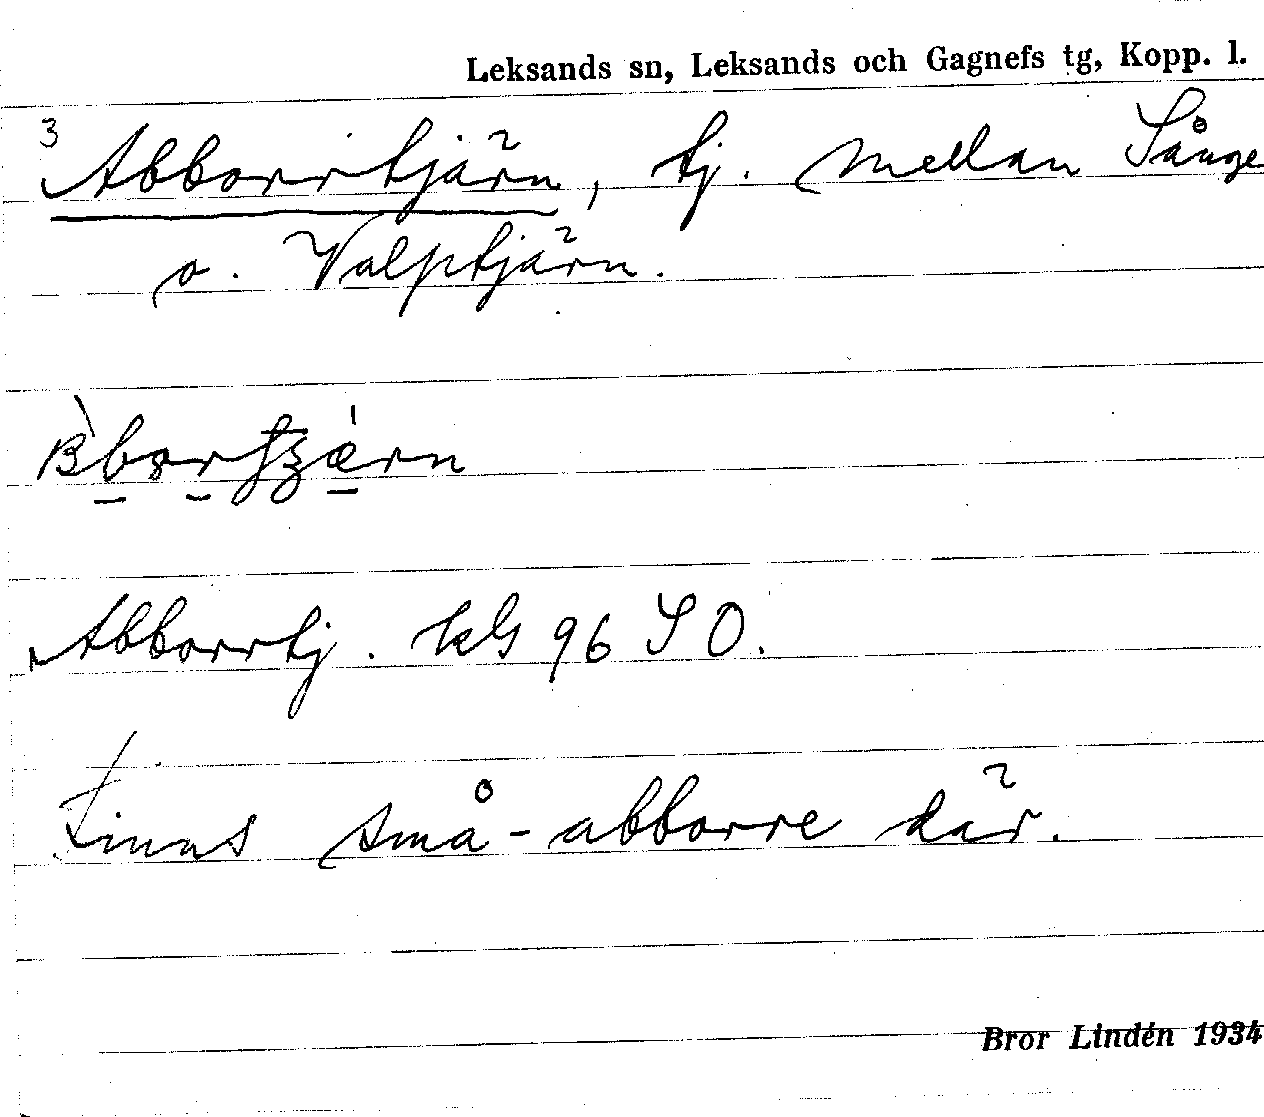 Leksands sn, Leksands och Gagnefs tg, Kopp. l.
3
Abborrtjärn, tj. mellan Sånge
o. Valptjärn.
Abborrtj. kbl 96 SO.
Finns små-abborre där.
Bror Lindén 1934